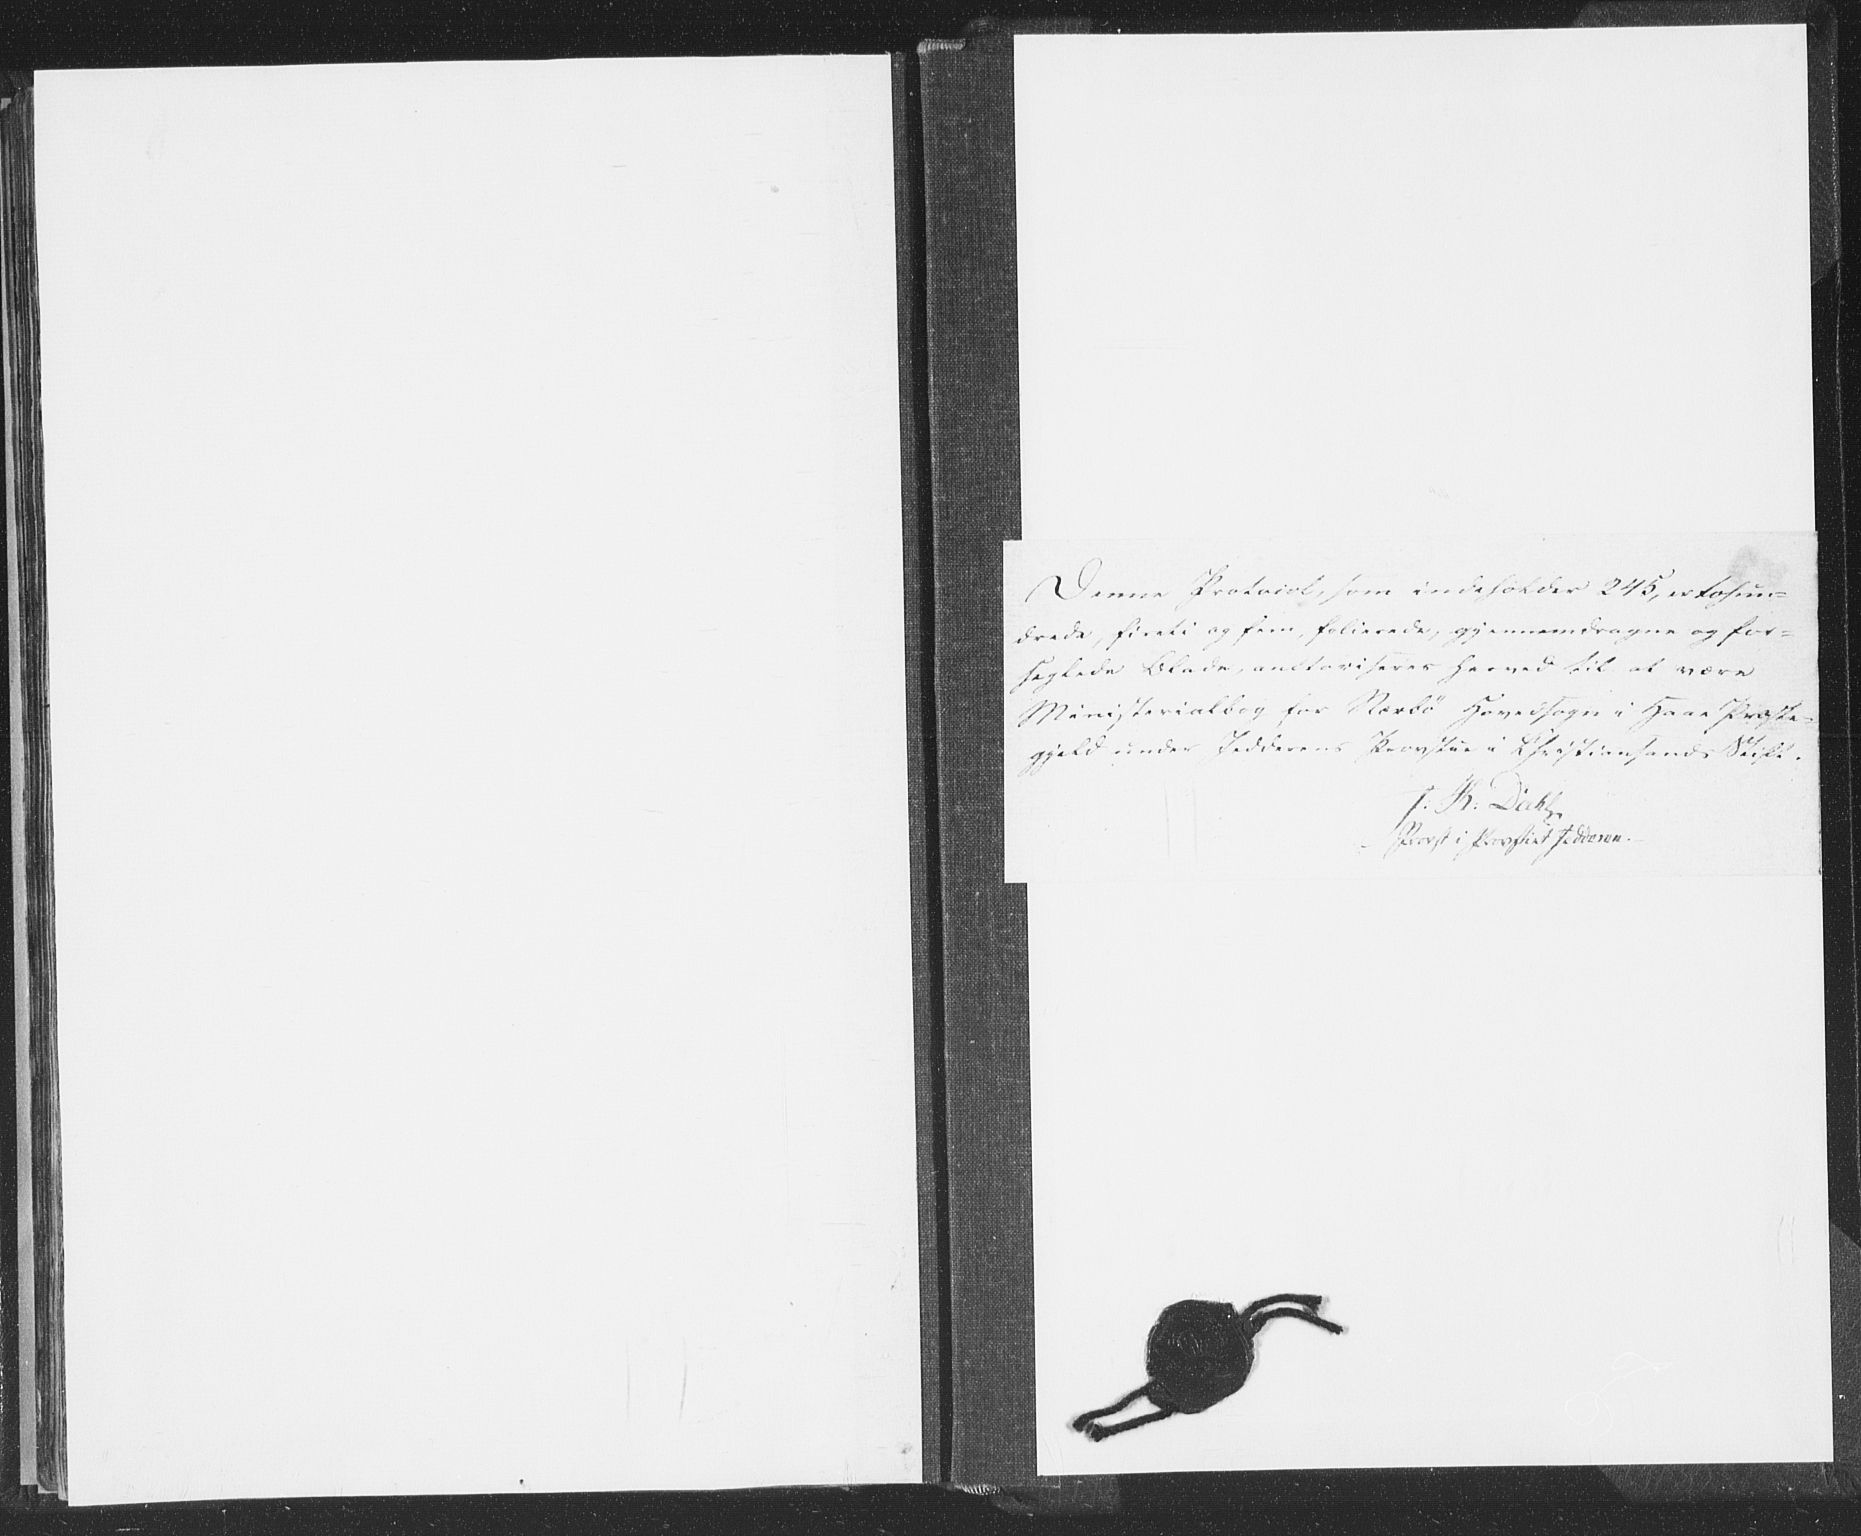 Denne Protocol, som indeholder 245, er tohun=
drede, fireti og fem, folierede, gjennemdragne og for=
seglede Blade, auctoriseres herved til at være
Ministerialbog for Nærbö Hovedsogn i Haae Præste=
gjeld under Jedderens Provstie i Christiansands Stift.
Provst i Provstiet Jedderen.